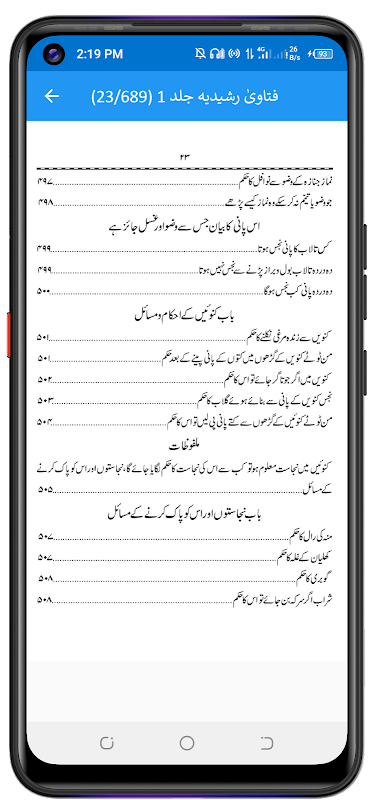 2:19 PM 4G 26 B/s 93
فتاویٰ رشیدیہ جلد 1 (23/689)
۲۳
نماز جنازہ کے وضو سے نوافل کا حکم ۴۹۷
جو وضو یا تیمم نہ کر سکے وہ نماز کیسے پڑھے ۴۹۸
اس پانی کا بیان جس سے وضو اور غسل جائز ہے
کس تالاب کا پانی نجس ہوتا ۴۹۹
دہ دردہ تالاب بول و براز پڑنے سے نجس نہیں ہوتا ۴۹۹
دہ دردہ پانی کب نجس ہوگا ۵۰۰
باب کنوئیں کے احکام و مسائل
کنویں سے زندہ مرغی نکلنے کا حکم ۵۰۱
من ٹوٹے کنویں کے گڑھوں میں کتوں کے پانی پینے کے بعد حکم ۵۰۱
کنویں میں اگر جوتا گر جائے تو اس کا حکم ۵۰۲
نجس کنویں کے پانی سے بنائے ہوئے گلاب کا حکم ۵۰۳
من ٹوٹے کنوئیں کے گڑھوں سے کتے پانی پی لیں تو اس کا حکم ۵۰۴
ملفوظات
کنوئیں میں نجاست معلوم ہو تو کب سے اس کی نجاست کا حکم لگایا جائے گا، نجاستوں اور اس کو پاک کرنے
کے مسائل ۵۰۵
باب نجاستوں اور اس کو پاک کرنے کے مسائل
منہ کی رال کا حکم ۵۰۷
کھلیان کے غلہ کا حکم ۵۰۷
گوبری کا حکم ۵۰۸
شراب اگر سرکہ بن جائے تو اس کا حکم ۵۰۸